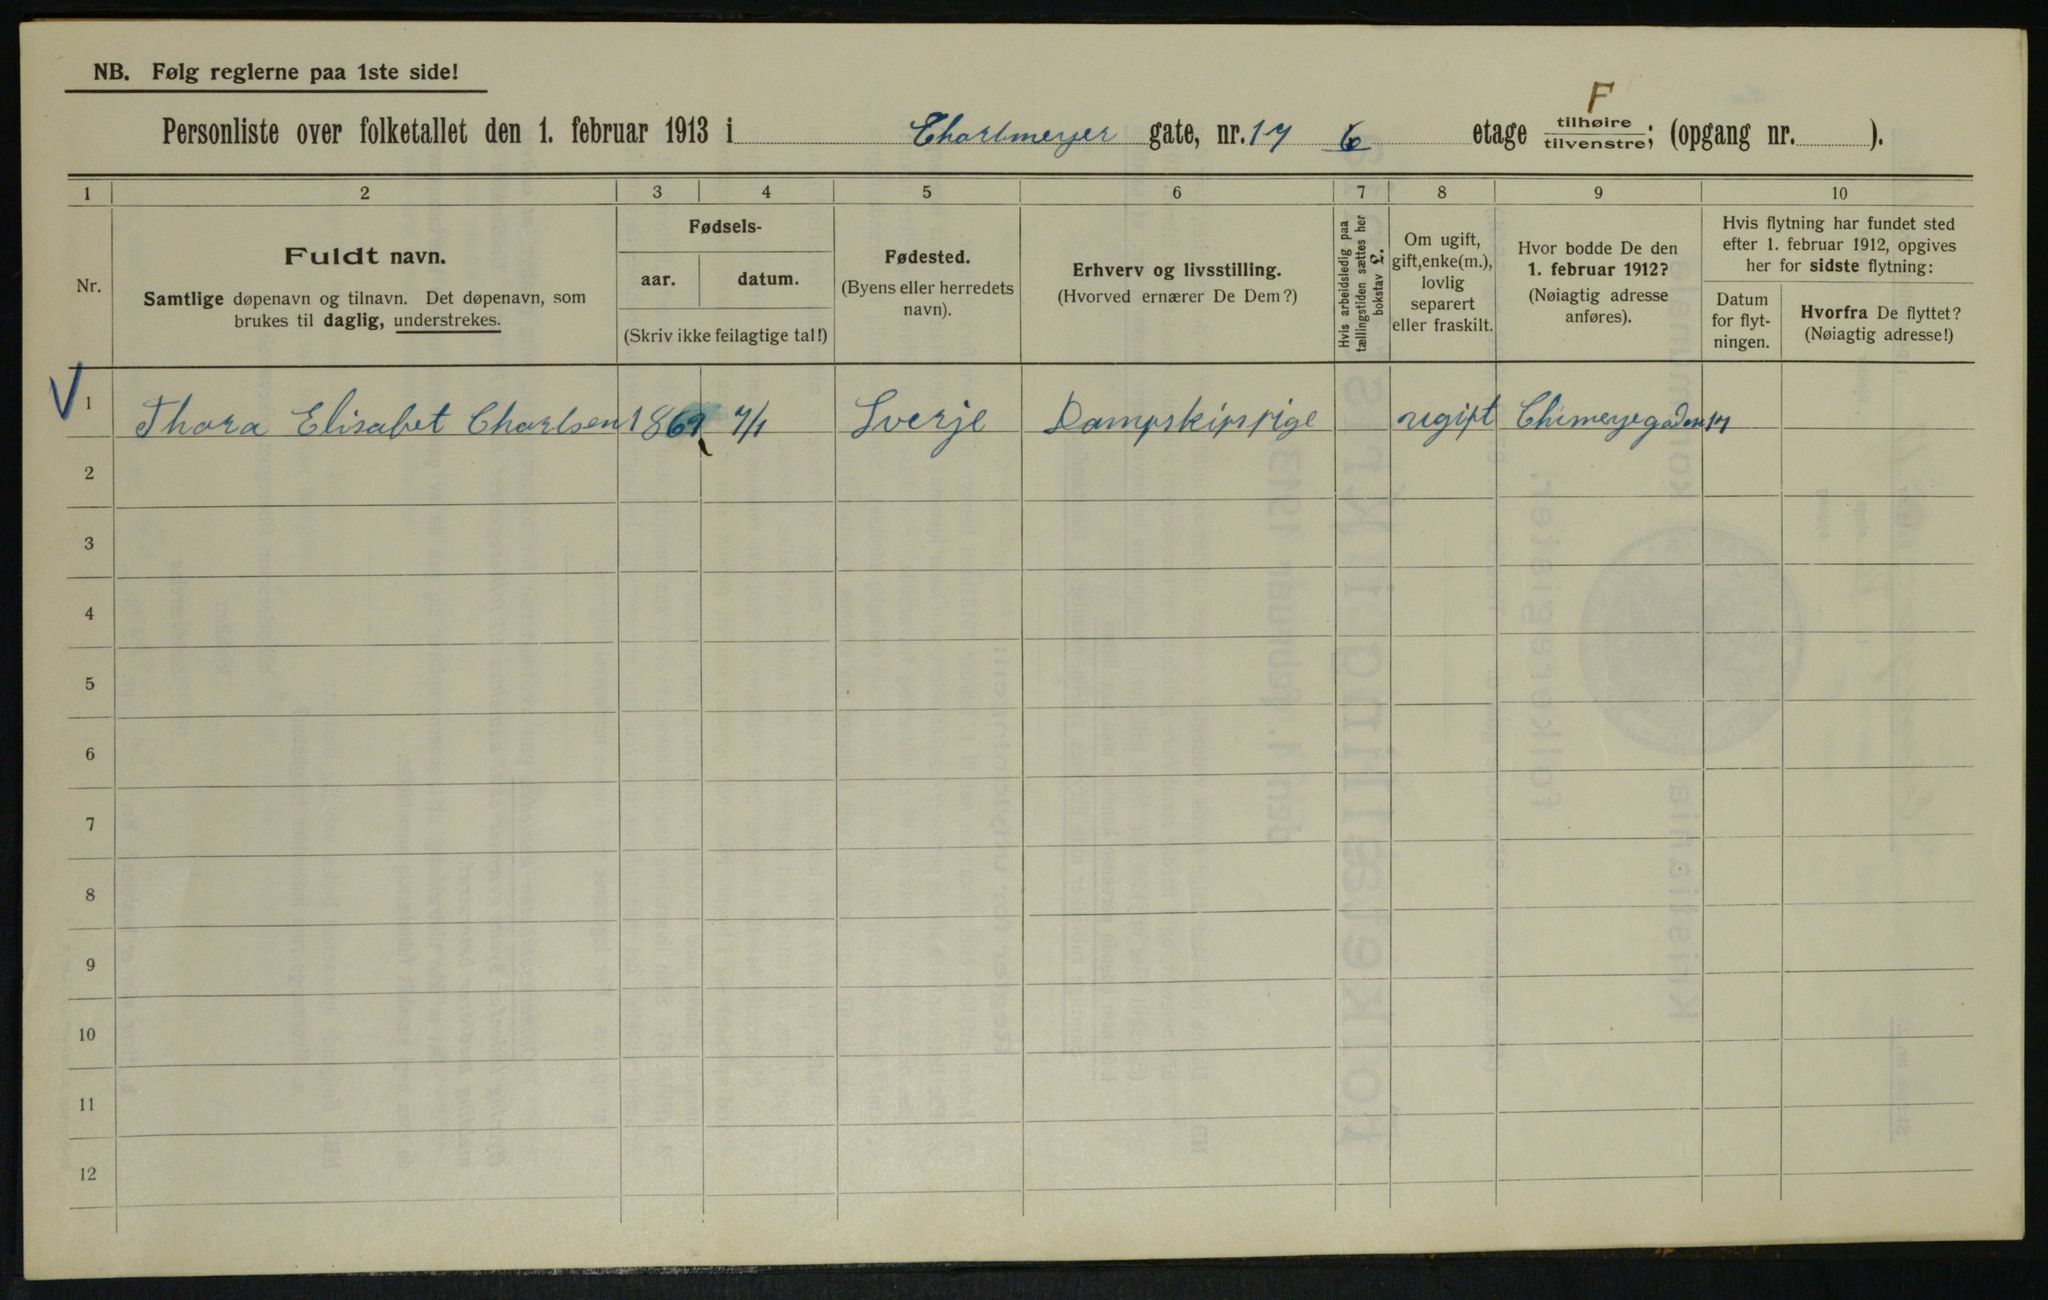 NB. Følg reglerne paa 1ste side!
F
Personliste over folketallet den 1. februar 1913 i Charlmeyer gate, nr. 17 6 etage tilhøire tilvenstre; (opgang nr. ).
1 2 3 4 5 6 7 8 9 10
Nr.
Fuldt navn.
Samtlige døpenavn og tilnavn. Det døpenavn, som
brukes til daglig, understrekes.
Fødsels-
aar. datum.
(Skriv ikke feilagtige tal!)
Fødested.
(Byens eller herredets
navn).
Erhverv og livsstilling.
(Hvorved ernærer De Dem?)
Hvis arbeidsledig paa
tællingstiden sættes her
bokstav L.
Om ugift,
gift, enke(m.),
lovlig
separert
eller fraskilt.
Hvor bodde De den
1. februar 1912?
(Nøiagtig adresse
anføres).
Hvis flytning har fundet sted
efter 1. februar 1912, opgives
her for sidste flytning:
Datum
for flyt-
ningen.
Hvorfra De flyttet?
(Nøiagtig adresse!)
V 1 Thora Elisabet Charlsen 1869 7/1 Sverje Dampskipspige ugift Chmeyegaden 17
2
3
4
5
6
7
8
9
10
11
12